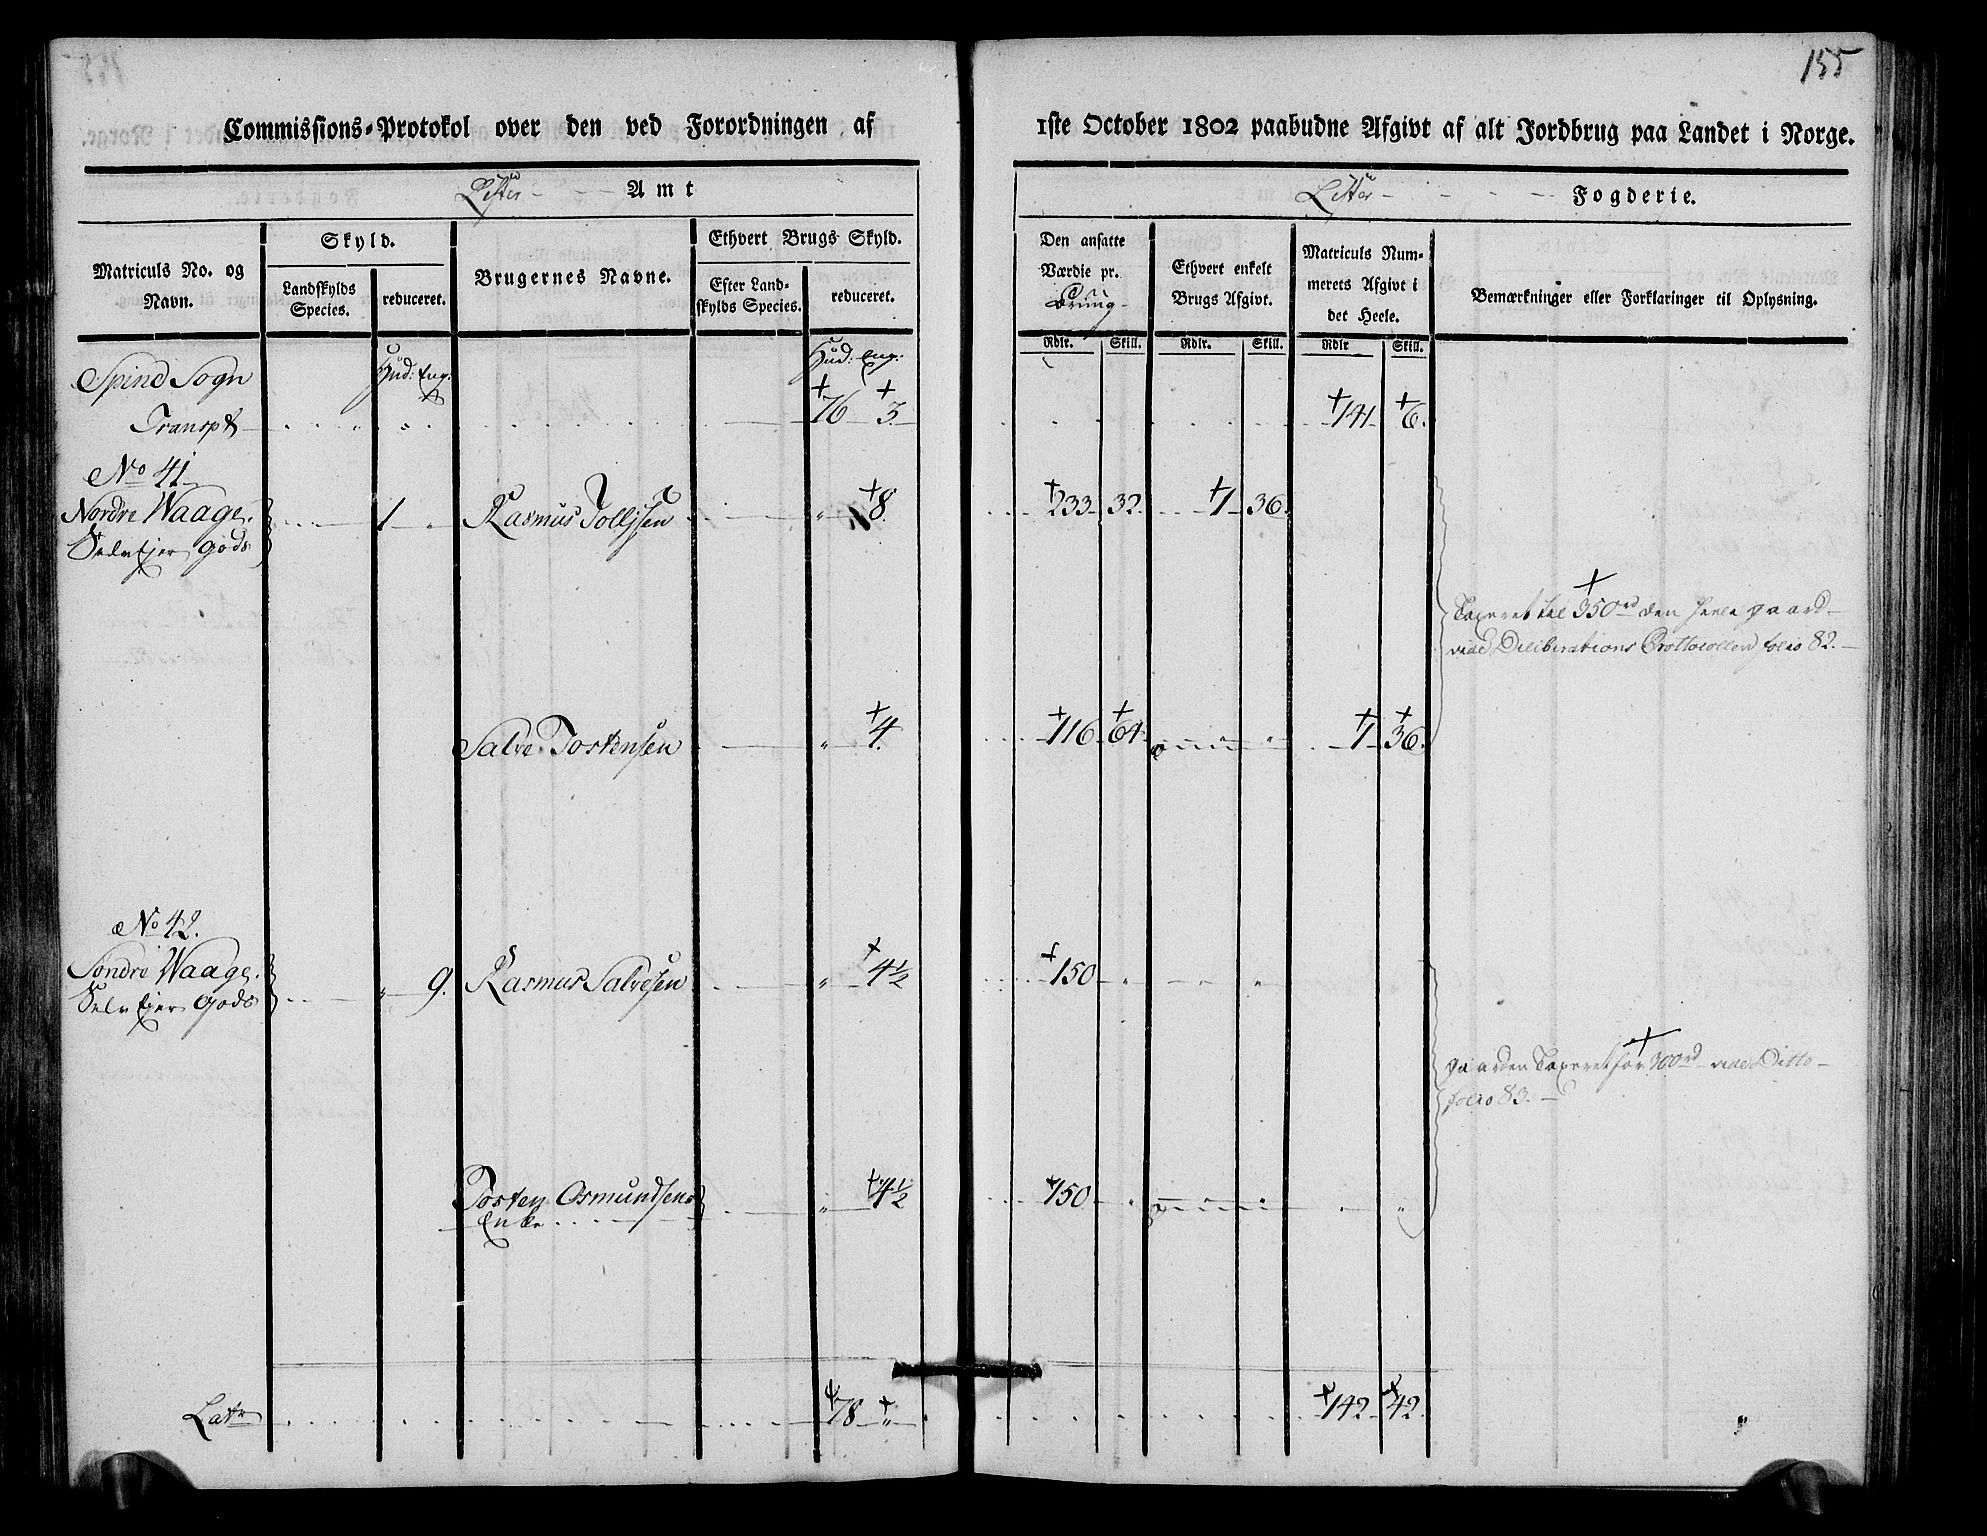 155
Commissions-Protokol over den ved Forordningen af 1ste October 1802 paabudne Afgivt af alt Jordbrug paa Landet i Norge.
Lister Amt
Lister Fogderie.
Matriculs No. og Navn.
Skyld.
Landskylds Species.
reduceret.
Brugernes Navne.
Ethvert Brugs Skyld.
Efter Landskylds Species.
reduceret.
Den ansatte Værdie pr. Brug
Ethvert enkelt Brugs Afgivt.
Matriculs Nummerets Afgivt i det Heele.
Bemærkninger eller Forklaringer til Oplysning.
Rdlr. Skill. Rdlr. Skill. Rdlr Skill.
Spind Sogn Hud: Eng: Hud: Eng:
Transpt 76 3. 141 6.
No 41.
Nordre Waage. 1 " Rasmus Tollefsen " 8. 233 32. 1 36.
Selv Ejer Gods
Taxeret til 350 rd den heele gaard
vide Deliberations Prottocollen folio 82.
Salve Tostensen " 4. 116 64 " 1 36.
No 42.
Søndre Waage. " 9. Rasmus Salvesen " 4½ 150 " " "
Selv Ejer Gods
gaarden Taxeret for 300 rd vide Ditto
folio 83.
Tosten Osmundsens " 4½ 150 " " " "
Enke
Latr 78 " 142 42.